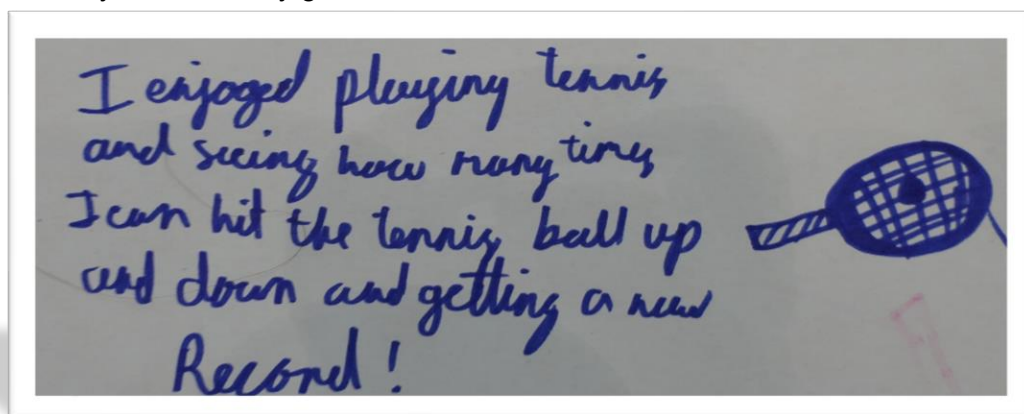 I enjoyed playing tennis
and seeing how many times
I can hit the tennis ball up
and down and getting a new
Record!